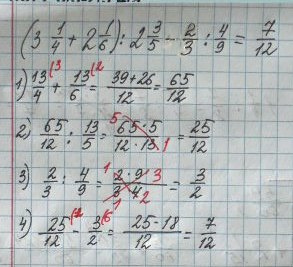 (3 1/4 + 2 1/6) : 2 3/5 - 2/3 : 4/9 = 7/12
1) 13/4 (3 + 13/6 (2 = 39+26/12 = 65/12
2) 65/12 : 13/5 = 65·5/12·13 = 25/12 5 1
3) 2/3 : 4/9 = 2·9/3·4 = 3/2 1 3 1 2
4) 25/12 (1 - 3/2 (6 = 25-18/12 = 7/12